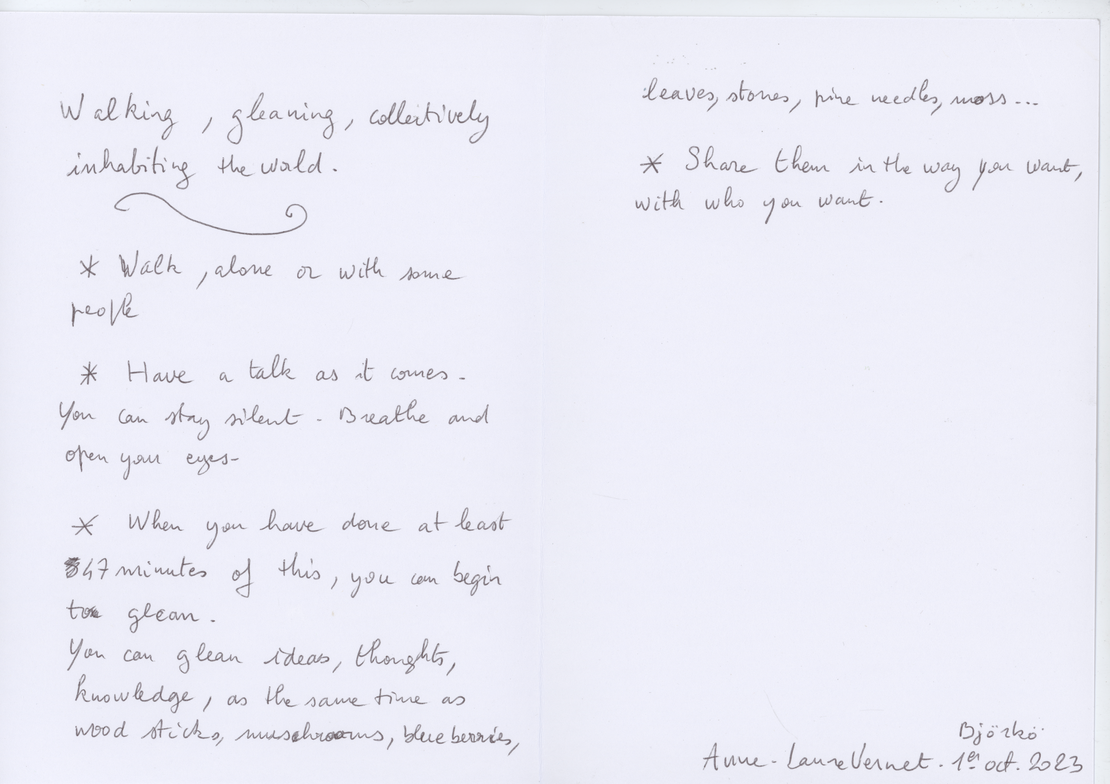 Walking, gleaning, collectively
inhabiting the world.
* Walk, alone or with some
people
* Have a talk as it comes -
You can stay silent - Breathe and
open your eyes -
* When you have done at least
47 minutes of this, you can begin
to glean.
You can glean ideas, thoughts,
knowledge, as the same time as
wood sticks, muschrooms, blueberries,
leaves, stones, pine needles, moss...
* Share them in the way you want,
with who you want.
Björkö
Anne-Laure Vernet. 1er oct. 2023